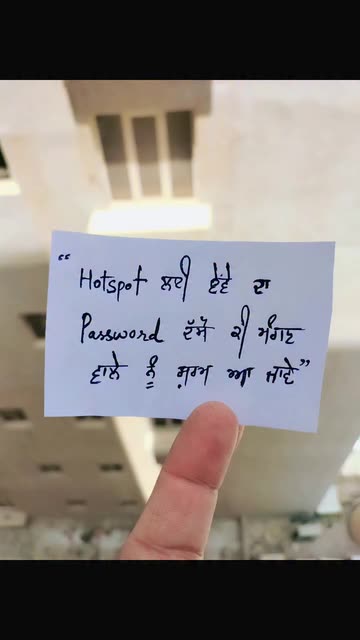 “ Hotspot ਲਈ ਏਹੋ ਦਾ
Password ਦੱਸੋ ਕੀ ਮੰਗਣ
ਵਾਲੇ ਨੂੰ ਸ਼ਰਮ ਆ ਜਾਵੇ”